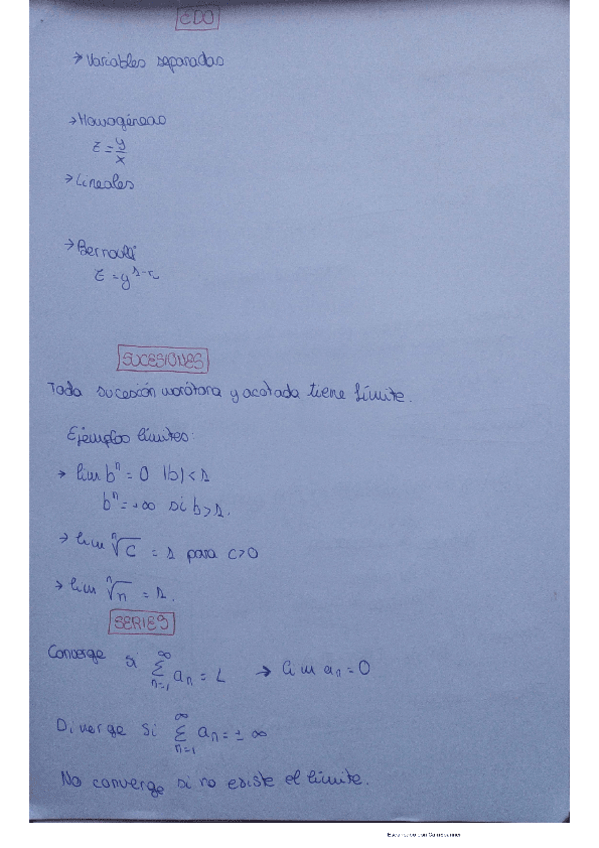 EDO
→ Variables separadas
→ Homogéneas
z = y/x
→ Lineales
→ Bernoulli
z = y^1-n
SUCESIONES
Toda sucesión monótona y acotada tiene límite.
Ejemplos límites:
→ lim b^n = 0 |b| < 1
b^n = +∞ si b > 1.
→ lim ⁿ√c = 1 para c>0
→ lim ⁿ√n = 1.
SERIES
Converge si ∞ Σ n=1 an = L → lim an = 0
Diverge si ∞ Σ n=1 an = ± ∞
No converge si no existe el límite.
Escaneado con CamScanner